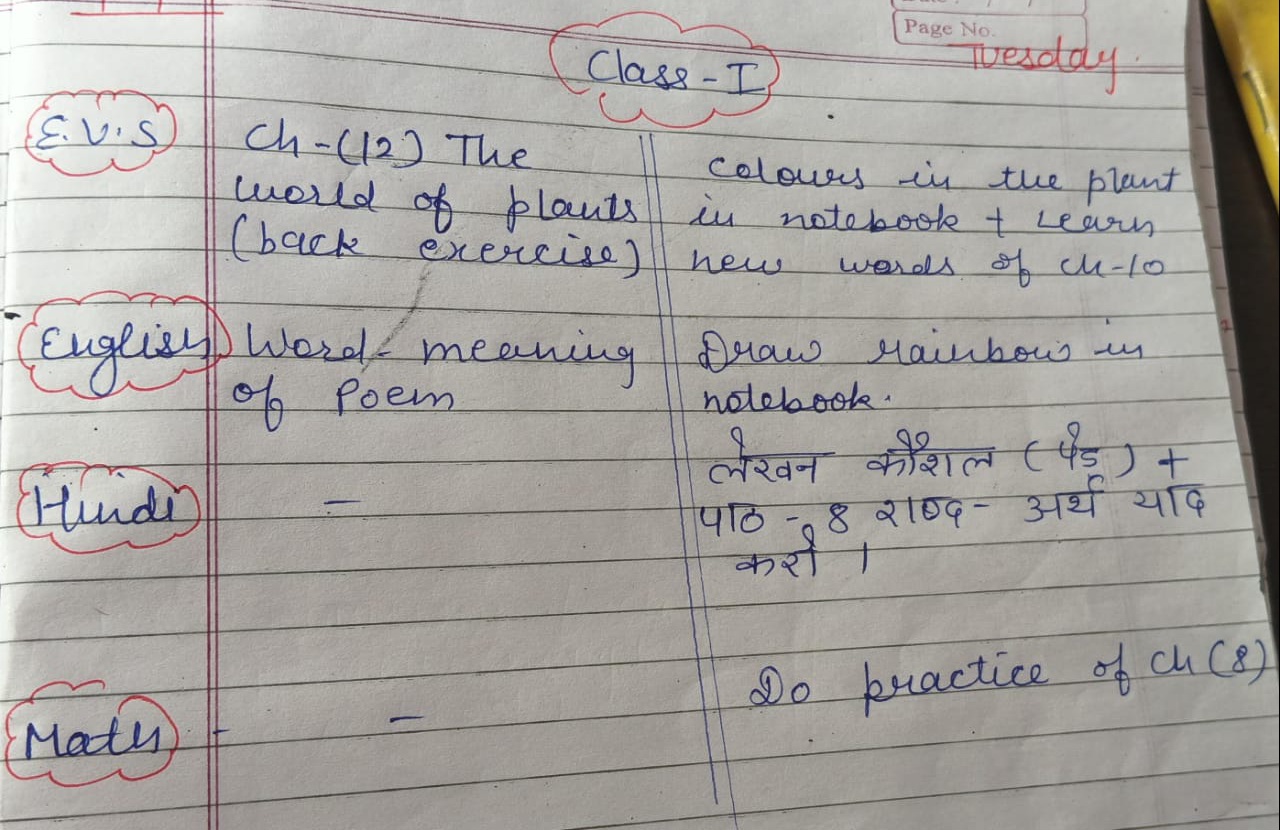 Page No.
Tuesday
Class-I
E.V.S
Ch-(12) The
world of plants
(back exercise)
colours in the plant
in notebook + Learn
new words of ch-10
English
Word-meaning
of Poem
Draw rainbow in
notebook.
Hindi
-
लेखन कौशल (पेड) +
पाठ - 8 शब्द - अर्थ याद
करो ।
Math
-
Do practice of ch (8)